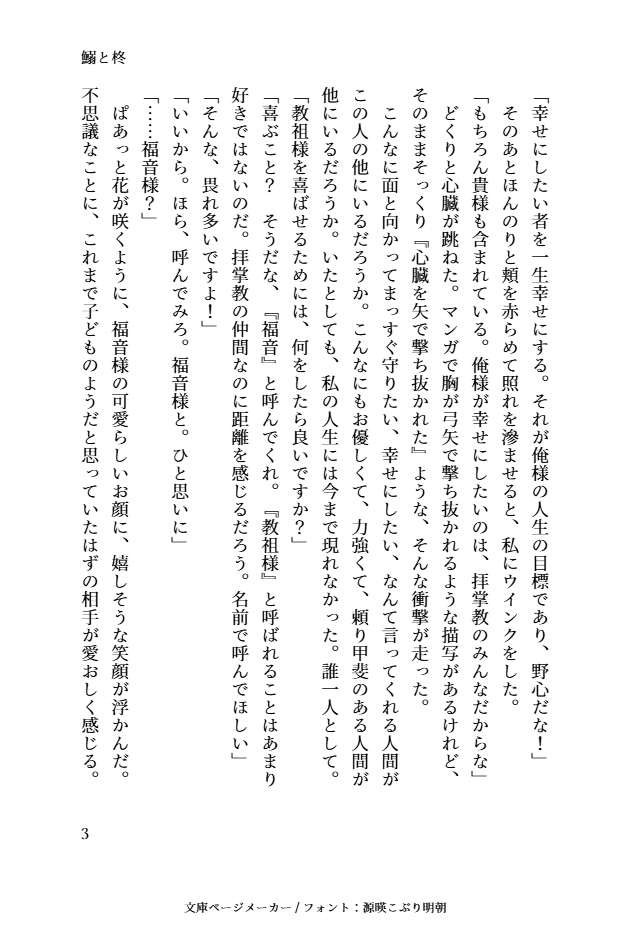 鰯と柊
「幸せにしたい者を一生幸せにする。それが俺様の人生の目標であり、野心だな！」
　そのあとほんのりと頬を赤らめて照れを滲ませると、私にウインクをした。
「もちろん貴様も含まれている。俺様が幸せにしたいのは、拝掌教のみんなだからな」
　どくりと心臓が跳ねた。マンガで胸が弓矢で撃ち抜かれるような描写があるけれど、
そのままそっくり『心臓を矢で撃ち抜かれた』ような、そんな衝撃が走った。
　こんなに面と向かってまっすぐ守りたい、幸せにしたい、なんて言ってくれる人間が
この人の他にいるだろうか。こんなにもお優しくて、力強くて、頼り甲斐のある人間が
他にいるだろうか。いたとしても、私の人生には今まで現れなかった。誰一人として。
「教祖様を喜ばせるためには、何をしたら良いですか？」
「喜ぶこと？　そうだな、『福音』と呼んでくれ。『教祖様』と呼ばれることはあまり
好きではないのだ。拝掌教の仲間なのに距離を感じるだろう。名前で呼んでほしい」
「そんな、畏れ多いですよ！」
「いいから。ほら、呼んでみろ。福音様と。ひと思いに」
「……福音様？」
　ぱあっと花が咲くように、福音様の可愛らしいお顔に、嬉しそうな笑顔が浮かんだ。
不思議なことに、これまで子どものようだと思っていたはずの相手が愛おしく感じる。
3
文庫ページメーカー / フォント：源暎こぶり明朝